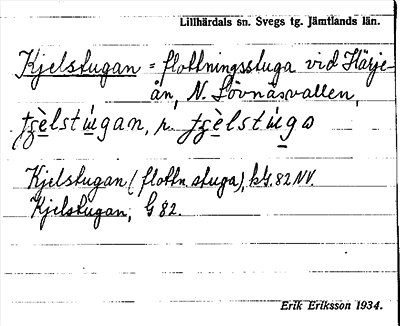 Lillhärdals sn. Svegs tg. Jämtlands län.
Kjelstugan = flottningsstuga vid Härje-
ån, N. Lövnäsvallen,
Kjelstugan (flottn. stuga), kG. 82 NV.
Kjelstugan, G 82.
Erik Eriksson 1934.